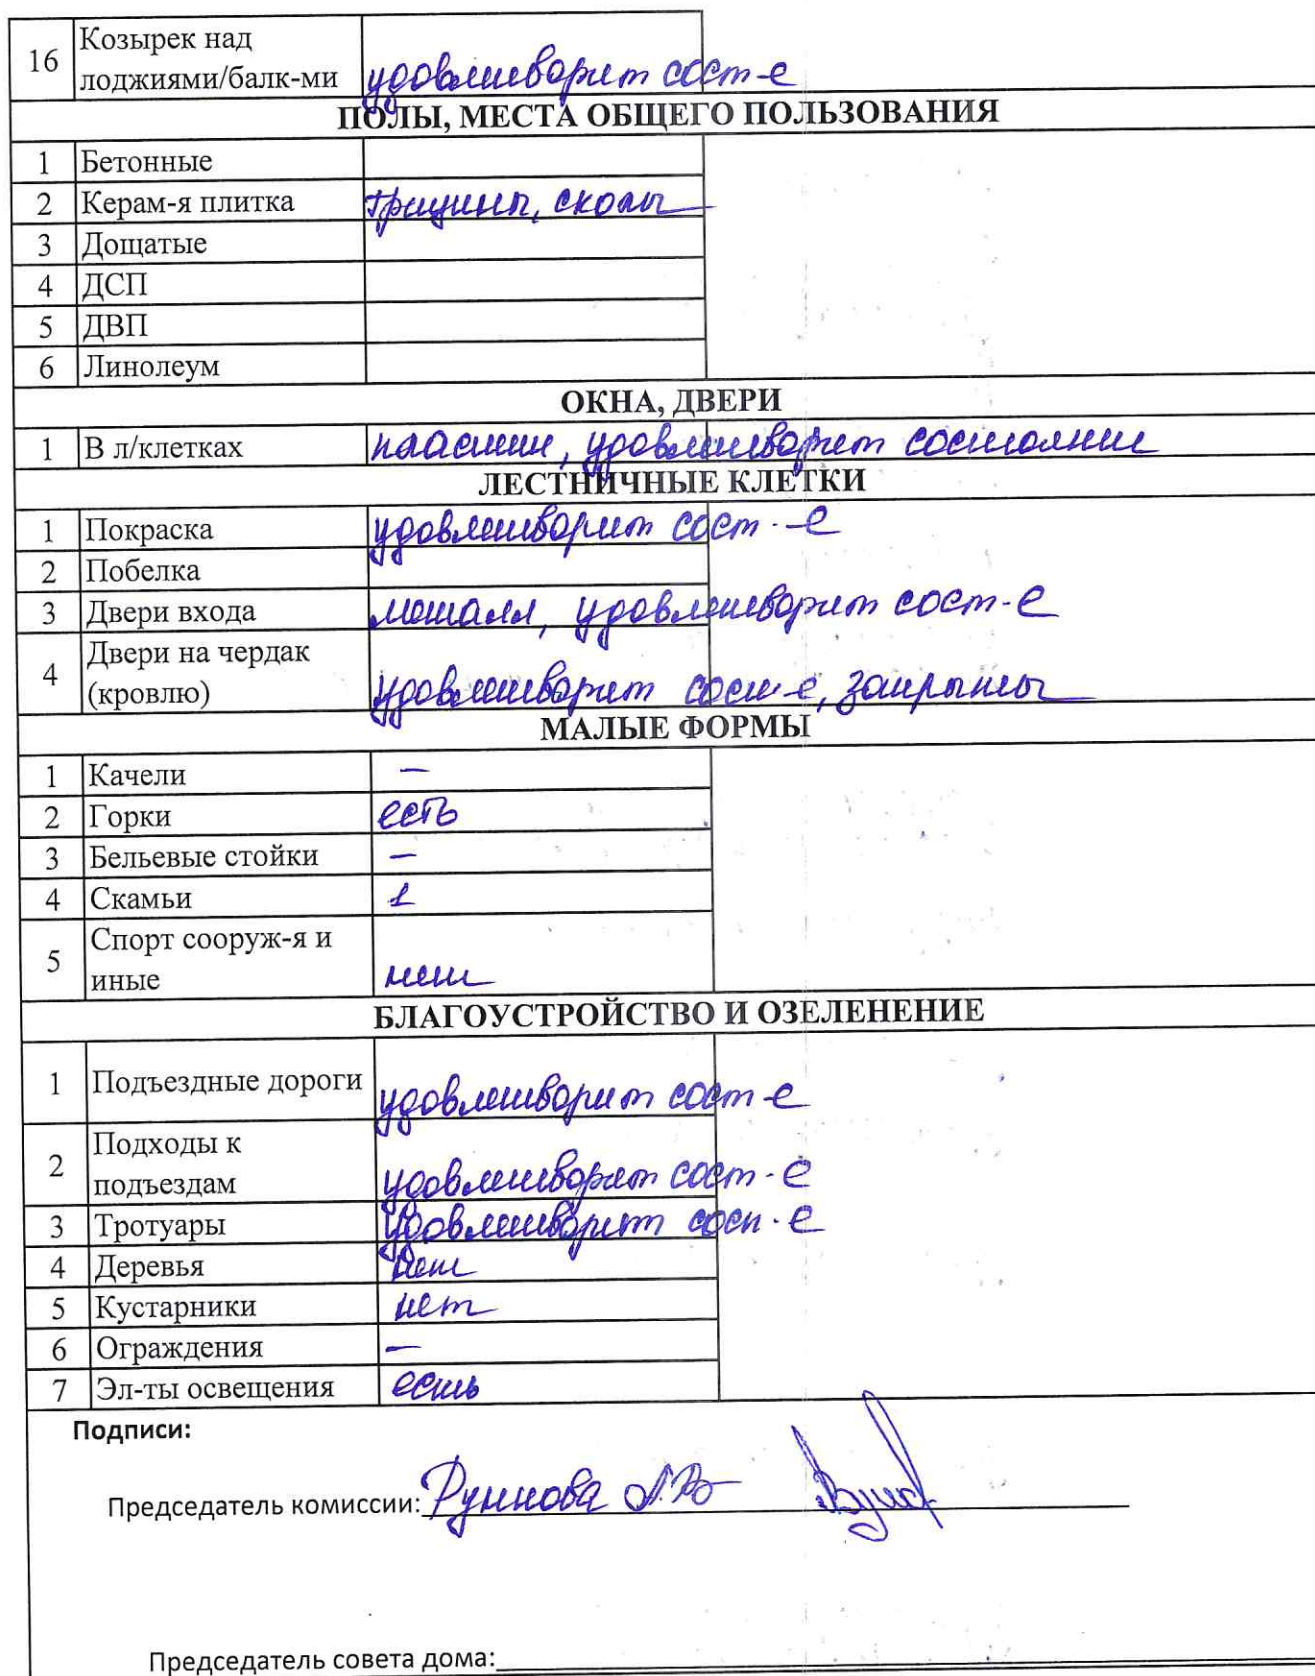 16 Козырек над
лоджиями/балк-ми удовлетворит сост-е
ПОЛЫ, МЕСТА ОБЩЕГО ПОЛЬЗОВАНИЯ
1 Бетонные
2 Керам-я плитка трещины, сколы
3 Дощатые
4 ДСП
5 ДВП
6 Линолеум
ОКНА, ДВЕРИ
1 В л/клетках пластик, удовлетворит состояние
ЛЕСТНИЧНЫЕ КЛЕТКИ
1 Покраска удовлетворит сост-е
2 Побелка
3 Двери входа металл, удовлетворит сост-е
Двери на чердак
4 (кровлю) удовлетворит сост-е, закрыты
МАЛЫЕ ФОРМЫ
1 Качели —
2 Горки есть
3 Бельевые стойки —
4 Скамьи 1
Спорт сооруж-я и
5 иные нет
БЛАГОУСТРОЙСТВО И ОЗЕЛЕНЕНИЕ
1 Подъездные дороги удовлетворит сост-е
Подходы к
2 подъездам удовлетворит сост-е
3 Тротуары удовлетворит сост-е
4 Деревья нет
5 Кустарники нет
6 Ограждения —
7 Эл-ты освещения есть
Подписи:
Председатель комиссии:
Председатель совета дома: